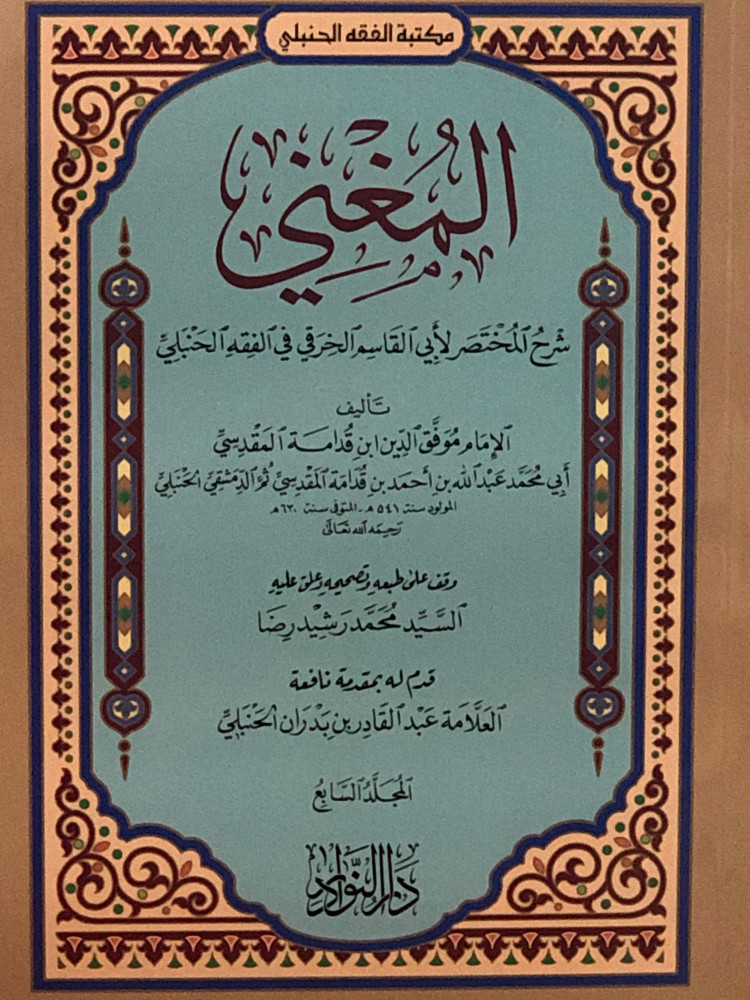 مكتبة الفقه الحنبلي
المُغني
شَرْحُ المُخْتَصَر لأبي القَاسِم الخِرَقي في الفقهِ الحَنْبَليِّ
تَأليف
الإمَام مُوَفَّق الدِّين ابنِ قُدامَة المَقْدِسيِّ
أبي مُحَمَّد عَبْد الله بن أحمَد بن قُدَامَة المَقْدِسيِّ ثُمَّ الدِّمَشْقِيِّ الحَنْبَليِّ
المولود سنة ٥٤١ هـ - المتوفى سنة ٦٢٠ هـ
رَحِمَه الله تعَالى
وقف على طبعهِ وتصحيحهِ وعلق عليهِ
السَّيِّد مُحَمَّد رَشِيْد رِضَا
قدم له بمقدمة نافعة
العَلَّامَة عَبْد القَادِر بن بَدْرَان الحَنْبَليِّ
المُجَلَّدُ السَّابعُ
دَارُ النَّوادِرِ